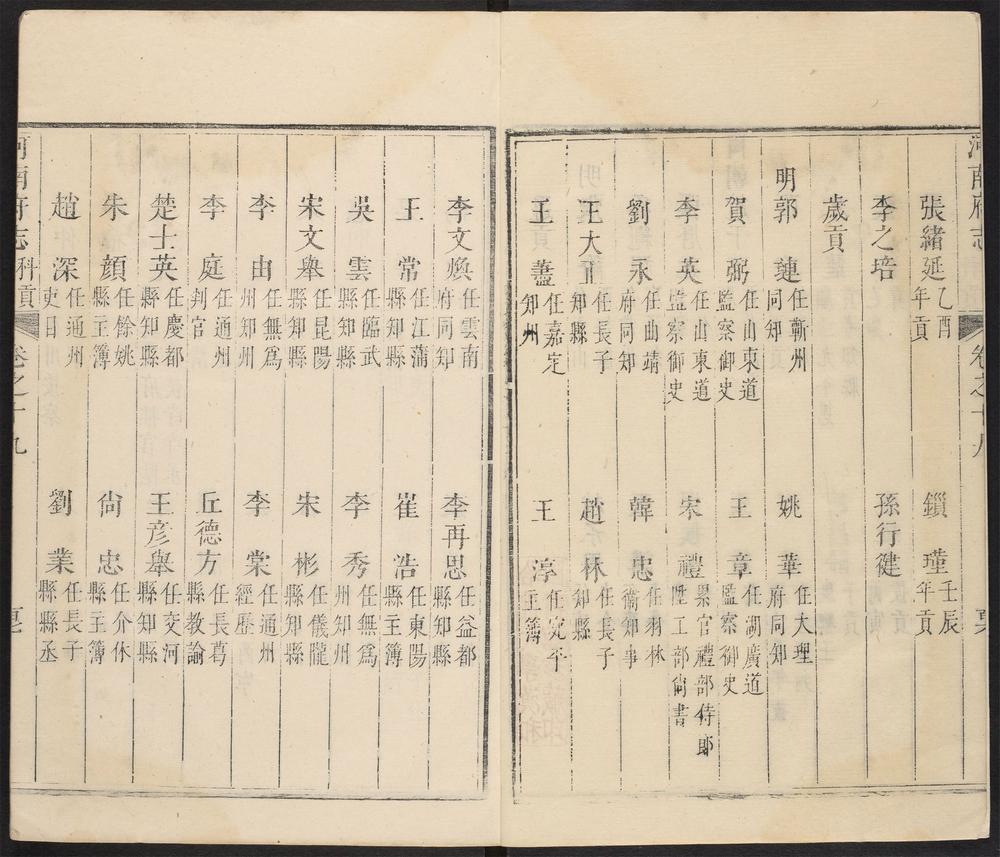 河南府志 卷之十九
張緒延 乙酉年貢 鎖瑾 壬辰年貢
李之培 孫行健
歲貢
明郭璉 任蘄州同知 姚華 任大理府同知
賀弼 任山東道監察御史 王章 任湖廣道監察御史
李英 任山東道監察御史 宋禮 累官禮部侍郎陞工部尚書
劉永 任曲靖府同知 韓忠 任羽林衛知事
王大正 任長子知縣 趙林 任長子知縣
王藎 任嘉定知州 王淳 任宛平主簿
李文煥 任雲南府同知 李再思 任益都縣知縣
王常 任江蒲縣知縣 崔浩 任東陽縣主簿
吳雲 任臨武縣知縣 李秀 任無為州知州
宋文舉 任昆陽縣知縣 宋彬 任儀隴縣知縣
李由 任無為州知州 李棠 任通州經歷
李庭 任通州判官 丘德方 任長葛縣教諭
楚士英 任慶都縣知縣 王彥舉 任交河縣知縣
朱顔 任餘姚縣主簿 尙忠 任介休縣主簿
趙深 任通州吏目 劉業 任長子縣縣丞
河南府志 科貢 卷之十九